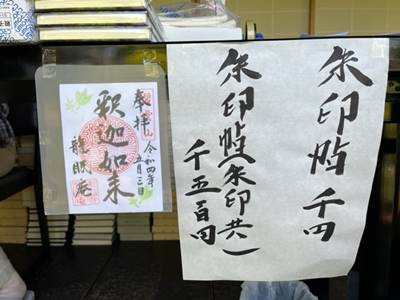 朱印帖 千円
朱印帖(朱印共)
千五百円
奉拝
令和四年
五月三日
釈迦如来
龍眠庵